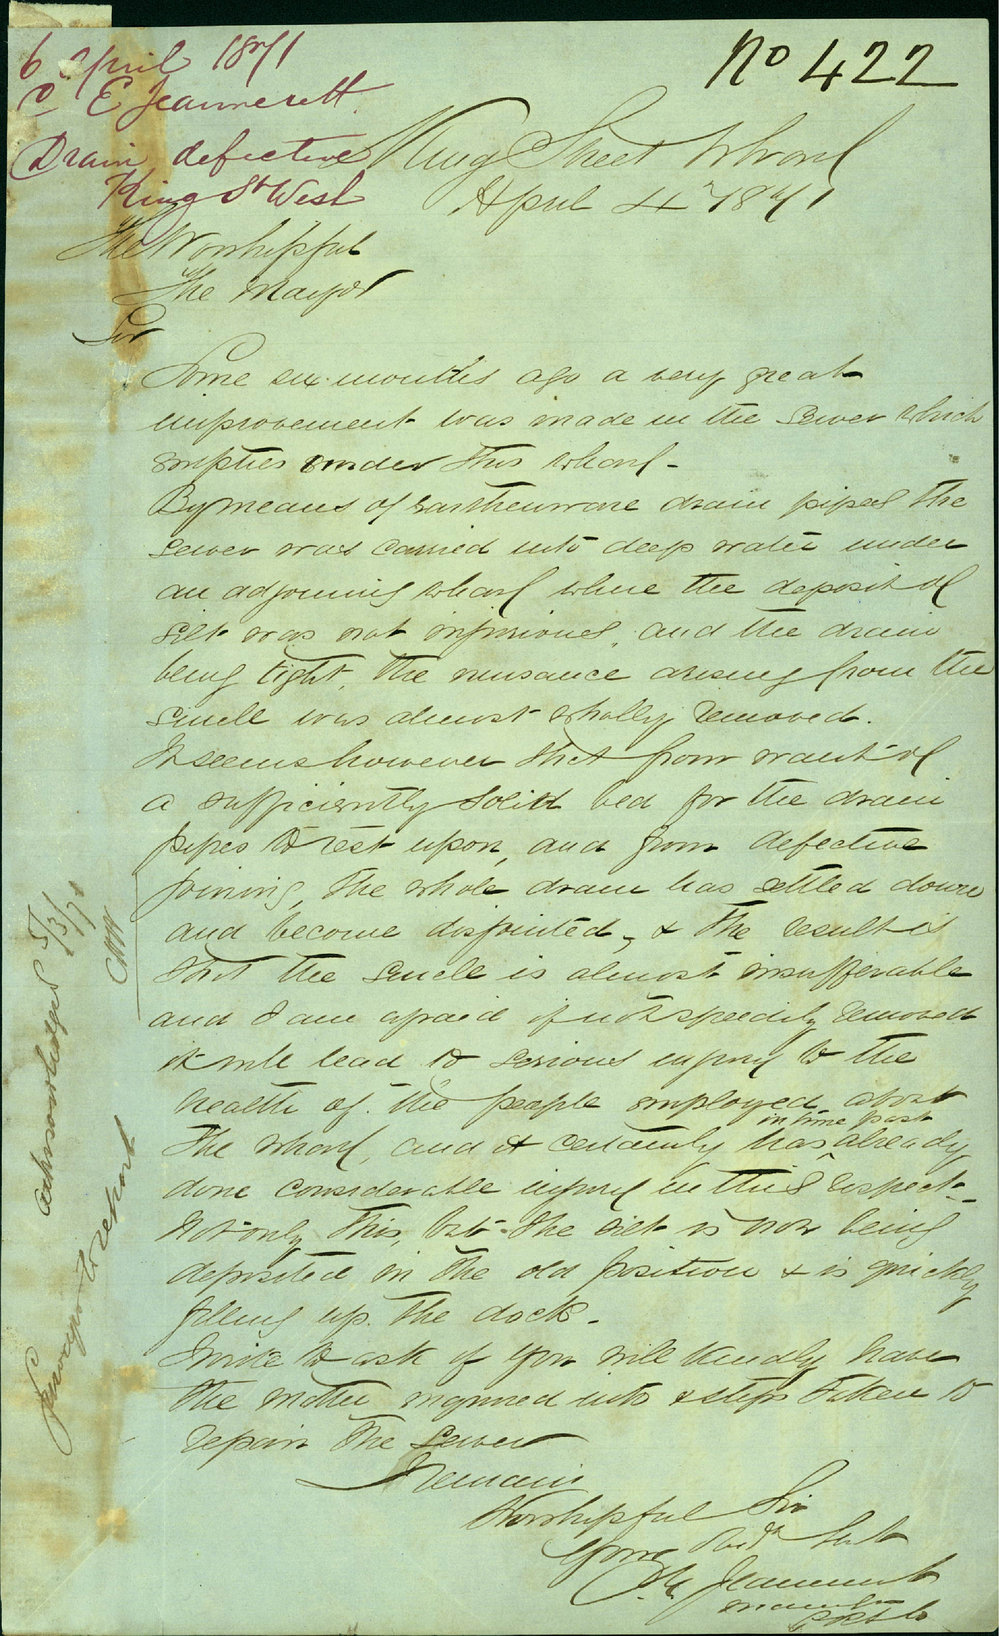 No 422
6 April 1871
C E Jeannerett
Drain defective
King St West
King Street Wharf
April 4th 1871
The Worshipful
The Mayor
Sir
Some six months ago a very great
improvement was made in the sewer which
empties under this wharf -
By means of Earthenware drain pipes the
sewer was carried into deep water under
an adjoining wharf where the deposit of
silt was not injurious, and the drain
being tight, the nuisance arising from the
smell was almost wholly removed.
It seems however that from want of
a sufficiently solid bed for the drain
pipes to rest upon, and from defective
joining, the whole drain has settled down
and become disjointed, & the result is
that the smell is almost insufferable
and I am afraid if not speedily removed
it will lead to serious injury to the
health of the people employed about
the wharf, and it certainly has in time past already
done considerable injury in this respect -
Not only this, but the silt is now being
deposited in the old position & is quickly
filling up the dock -
I write to ask if you will kindly have
the matter inquired into & steps taken to
repair the sewer
I remain
Worshipful Sir
Your Obdt Servt
C. E. Jeannerett
Manager
acknowledged 5/3/71
Surveyor to report